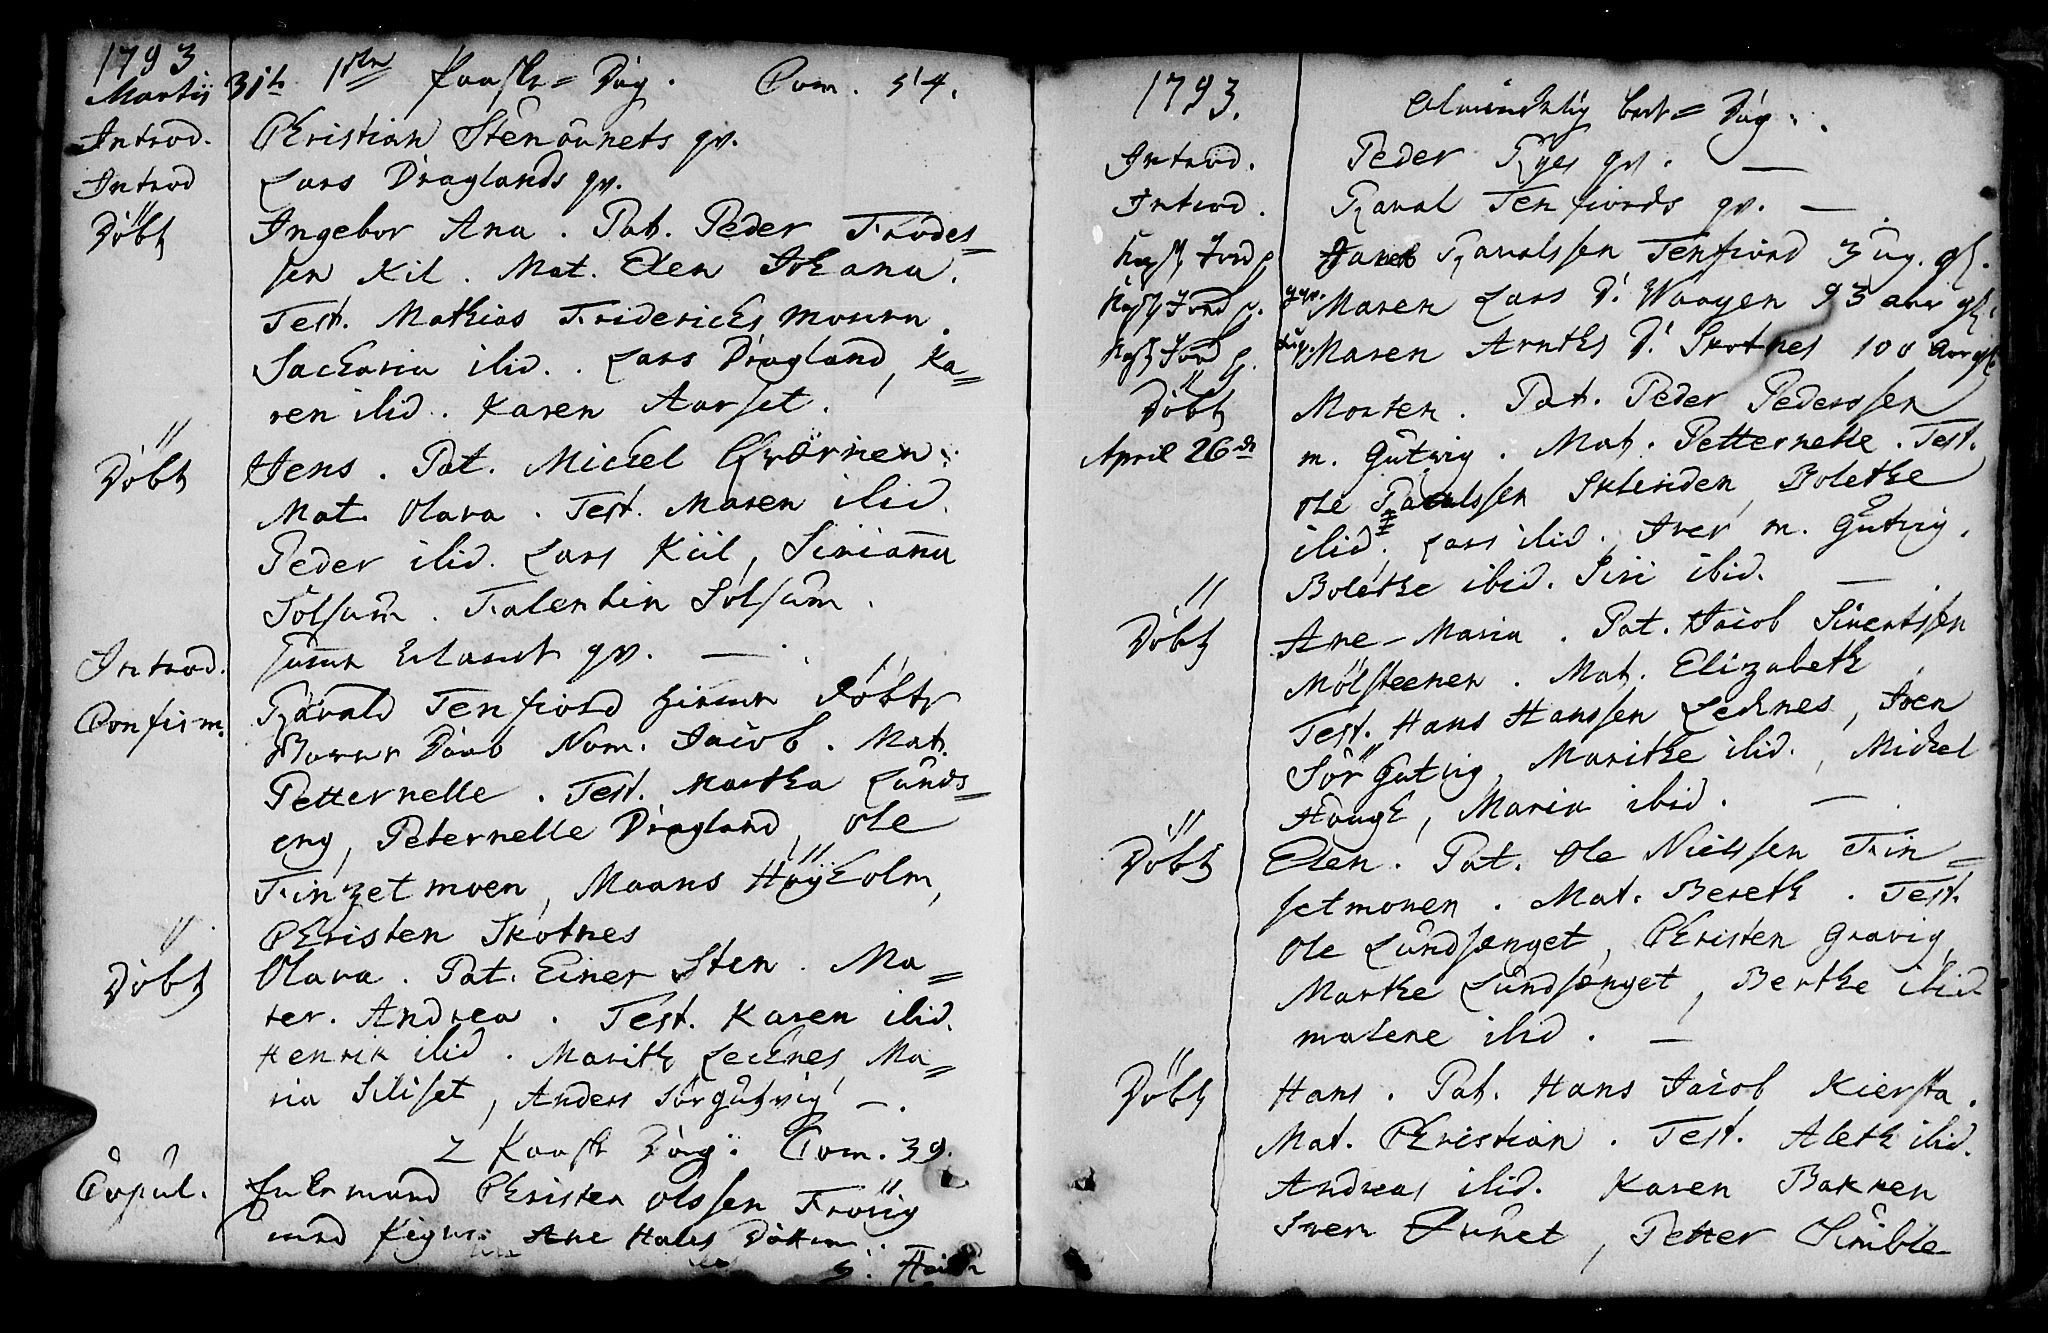 1793
Martij 31te 1ste Paaske=Dag. Com. 54.
Introd. Christian Stenaunets qv.
Introd Lars Draglands qv.
Döbt Ingebor Ana. Pat. Peder Frodes=
sen Kil. Mat. Elen Johana.
Test. Mathias Friderichs
Sacharia ibid. Lars Dragland, Ka=
ren ibid. Karen Aarset.
Döbt Jens. Pat. Michel Qværnen.
Mat. Olava. Test. Maren ibid.
Peder ibid. Lars Kiil, Siriana
Solsum. Falentin Solsum.
Introd. qv.
Confirm. Tarald Tenfiord Döbte
Daab Nom. Jacob. Mat.
Petternelle. Test. Martha Lunds=
eng, Peternelle Dragland, Ole
Finzetmoen, Maans Höÿholm,
Christen Skotnes
Döbt Olava. Pat. Einer Sten. Ma=
ter. Andrea. Test. Karen ibid.
Henrik ibid. Marith Lechnes Ma=
ria Siliset, Anders Sörgutvig.
2 Paaske Dag. Com. 39.
Copul. Christen Olssen Fröviig
med Pigen Ane Hans Dötter
1793.
Almindelig bede=Dag.
Introd. Peder Ryes qv.
Introd. Taral Tenfiords qv.
Jacob Taralssen Tenfiord 3 ug. gl.
Maren Lars D. Waagen 93 aar gl.
Maren Arnths D. Skotnes 100 aar gl.
Döbt Morten. Pat. Peder Pederssen
April 26de m. Gutvig. Mat. Petternelle. Test.
Ole Taralssen Sklinden, Bolethe
ibid, Lars ibid. Iver m. Gutvig.
Bolethe ibid. Siri ibid.
Döbt Ane-Maria. Pat. Jacob Sivertssen
Mölsteenen. Mat. Elizabeth
Test. Hans Hanssen Lechnes, Iven
Sör Gutvig, Marithe ibid., Michel
Hough, Maria ibid.
Döbt Elen. Pat. Ole Nielssen Fin=
setmonen. Mat. Bereth. Test.
Ole Lundsenget, Christen Gravig,
Marthe Lundsenget, Berthe ibid
malene ibid.
Döbt Hans. Pat. Hans Jacob Kiersta.
Mat. Christian. Test. Aleth ibid.
Andreas ibid. Karen Bakken
Sven, Petter Simble